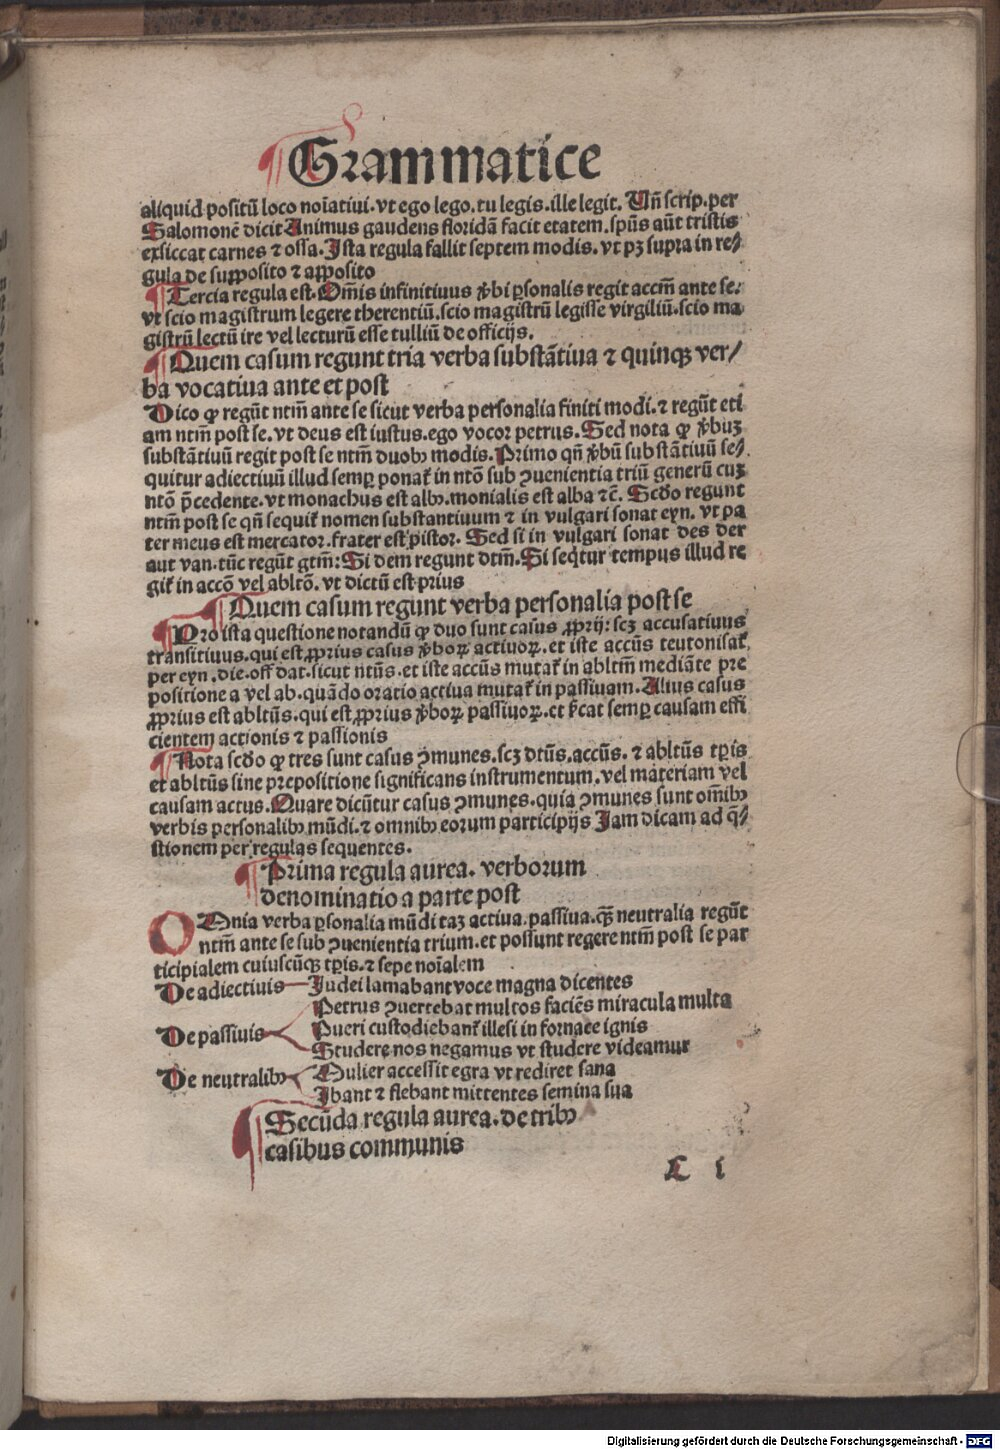 Grammatice
aliquid positū loco noīatiui. vt ego lego. tu legis. ille legit. Vn̄ scrip. per
Salomonē dicit Animus gaudens floridā facit etatem. spūs aūt tristis
exsiccat carnes ⁊ ossa. Ista regula fallit septem modis. vt pꝫ supra in re⸗
gula de supposito ⁊ apposito
¶ Tercia regula est. Om̄is infinitiuus v̄bi ꝑsonalis regit accm̄ ante se.
vt scio magistrum legere therentiū. scio magistrū legisse virgiliū. scio ma
gistrū lectū ire vel lecturū esse tulliū de officijs.
¶ Quem casum regunt tria verba substātiua ⁊ quinqꝫ ver⸗
ba vocatiua ante et post
Dico ꝙ regūt ntm̄ ante se sicut verba personalia finiti modi. ⁊ regūt eti
am ntm̄ post se. vt deus est iustus. ego vocor petrus. Sed nota ꝙ v̄buꝫ
substātiuū regit post se ntm̄ duobꝰ modis. Primo qn̄ v̄bū substātiuū se⸗
quitur adiectiuū illud semꝑ ponat᷑ in ntō sub ꝯuenientia triū generū cuꝫ
ntō p̄cedente. vt monachus est albꝰ. monialis est alba ⁊c̄. Scd̄o regunt
ntm̄ post se qn̄ sequit᷑ nomen substantiuum ⁊ in vulgari sonat eyn. vt pa
ter meus est mercator. frater est pistor. Sed si in vulgari sonat des der
aut van. tūc regūt gtm̄: Si dem regunt dtm̄. Si seqͥtur tempus illud re
git᷑ in accō vel abltō. vt dictū est prius
¶ Quem casum regunt verba personalia post se
¶ Pro ista questione notandū ꝙ duo sunt casus ꝓprij: scꝫ accusatiuus
transitiuus. qui est ꝓprius casus v̄boꝝ actiuoꝝ. et iste accūs teutonisat᷑
per eyn. die. off dat. sicut ntūs. et iste accūs mutat᷑ in abltm̄ mediāte pre
positione a vel ab. quādo oratio actiua mutat᷑ in passiuam. Alius casus
ꝓprius est abltūs. qui est ꝓprius v̄boꝝ passiuoꝝ. et s̄cat semꝑ causam effi
cientem actionis ⁊ passionis
¶ Nota scd̄o ꝙ tres sunt casus ꝯmunes. scꝫ dtūs. accūs. ⁊ abltūs tꝑis
et abltūs sine prepositione significans instrumentum. vel materiam vel
causam actus. Quare dicūtur casus ꝯmunes. quia ꝯmunes sunt om̄ibꝰ
verbis personalibꝰ mūdi. ⁊ omnibꝰ eorum participijs Jam dicam ad q̄⸗
stionem per regulas sequentes.
¶ Prima regula aurea. verborum
denominatio a parte post
OMnia verba ꝑsonalia mūdi taꝫ actiua. passiua. qꝫ̄ neutralia regūt
ntm̄ ante se sub ꝯuenientia trium. et possunt regere ntm̄ post se par
ticipialem cuiuscūqꝫ tꝑis. ⁊ sepe noīalem
De adiectiuis Judei lamabant voce magna dicentes
Petrus ꝯuertebat multos faciēs miracula multa
De passiuis Pueri custodiebant᷑ illesi in fornaee ignis
Studere nos negamus vt studere videamur
De neutralibꝰ Mulier accessit egra vt rediret sana
Ibant ⁊ flebant mittentes semina sua
¶ Secūda regula aurea. de tribꝰ
casibus communis
Digitalisierung gefördert durch die Deutsche Forschungsgemeinschaft - DFG